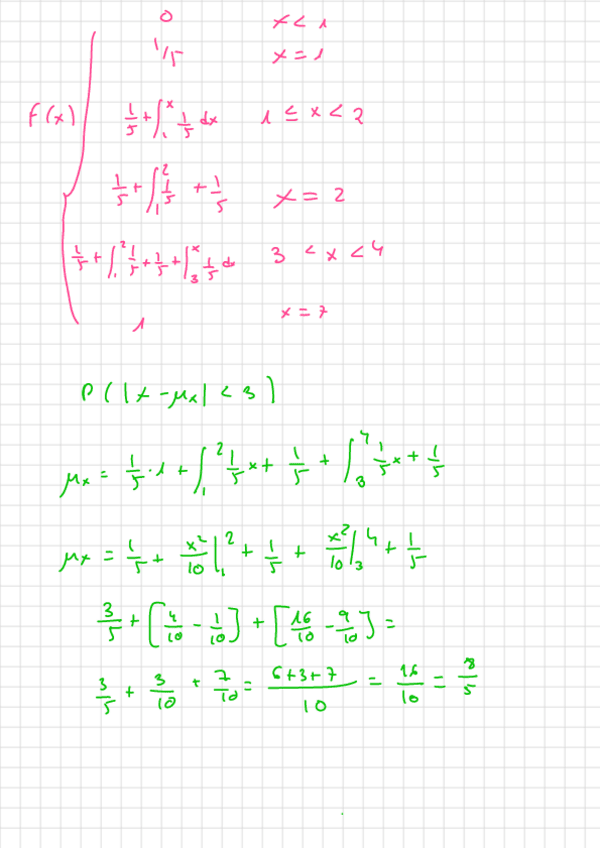 0 x < 1
1/5 x = 1
F(x) 1/5 + ∫₁ˣ 1/5 dx 1 ≤ x < 2
1/5 + ∫₁² 1/5 + 1/5 x = 2
1/5 + ∫₁² 1/5 + 1/5 + ∫₃ˣ 1/5 dx 3 < x < 4
1 x = 7
P ( | x - μₓ | < 3 )
μₓ = 1/5 · 1 + ∫₁² 1/5 x + 1/5 + ∫₃⁴ 1/5 x + 1/5
μₓ = 1/5 + x²/10 |₁² + 1/5 + x²/10 |₃⁴ + 1/5
3/5 + [ 4/10 - 1/10 ] + [ 16/10 - 9/10 ] =
3/5 + 3/10 + 7/10 = (6+3+7)/10 = 16/10 = 8/5